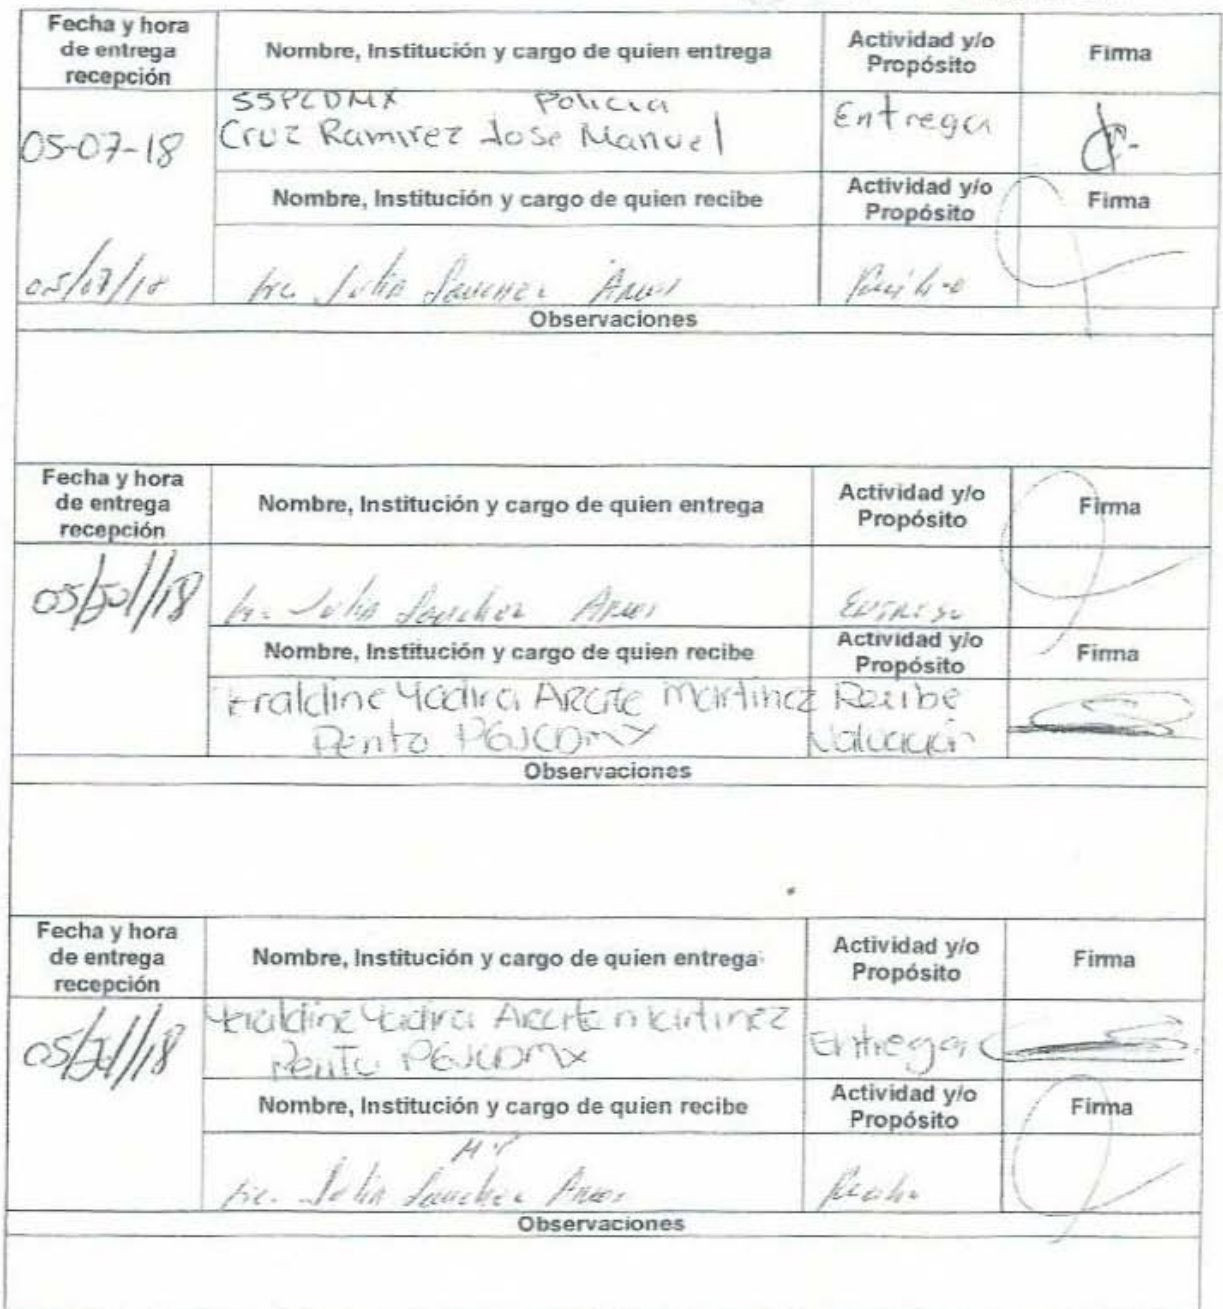 Fecha y hora de entrega recepción
Nombre, Institución y cargo de quien entrega
Actividad y/o Propósito
Firma
05-07-18
SSPCDMX Policia
Cruz Ramirez Jose Manuel
Entrega
Nombre, Institución y cargo de quien recibe
Actividad y/o Propósito
Firma
05/07/18
Lic. Julia Sanchez
Recibo
Observaciones
Fecha y hora de entrega recepción
Nombre, Institución y cargo de quien entrega
Actividad y/o Propósito
Firma
Lic. Julia Sanchez
Entrego
Nombre, Institución y cargo de quien recibe
Actividad y/o Propósito
Firma
Yadira Martinez
Perito PGJCDMX
Recibe
Valuación
Observaciones
Fecha y hora de entrega recepción
Nombre, Institución y cargo de quien entrega
Actividad y/o Propósito
Firma
Yadira Martinez
Perito PGJCDMX
Entrega
Nombre, Institución y cargo de quien recibe
Actividad y/o Propósito
Firma
Lic. Julia Sanchez
Observaciones